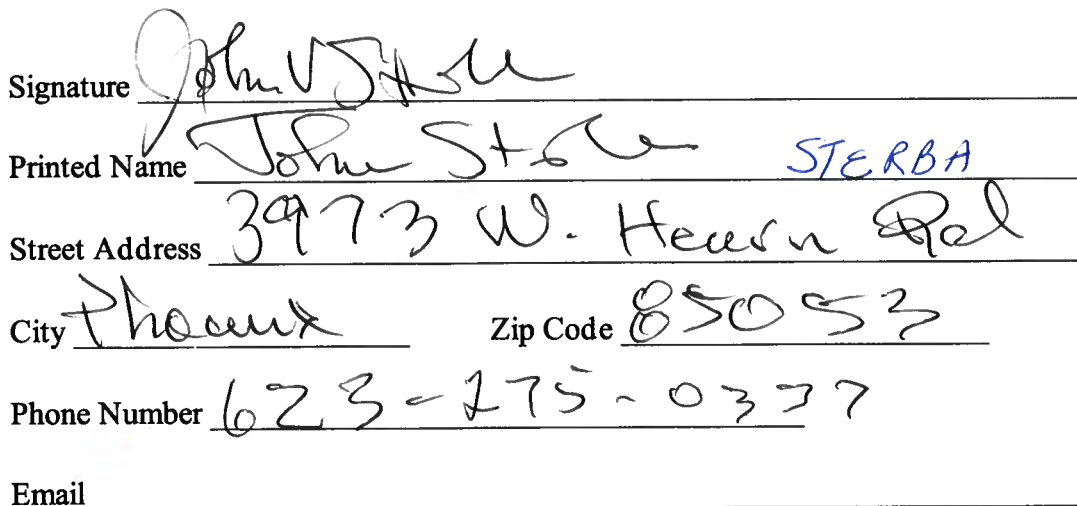 Signature John V Sterba
Printed Name John Sterba STERBA
Street Address 3973 W. Hearn Rd
City Phoenix Zip Code 85053
Phone Number 623-275-0337
Email